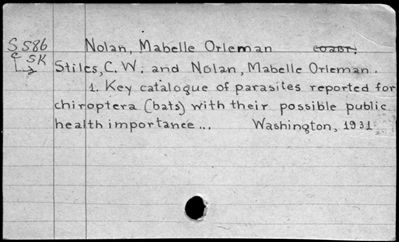 S 586 Nolan, Mabelle Orleman coabt.
& SK
Stiles, C. W. and Nolan, Mabelle Orleman.
1. Key catalogue of parasites reported for
chiroptera (bats) with their possible public
health importance... Washington, 1931